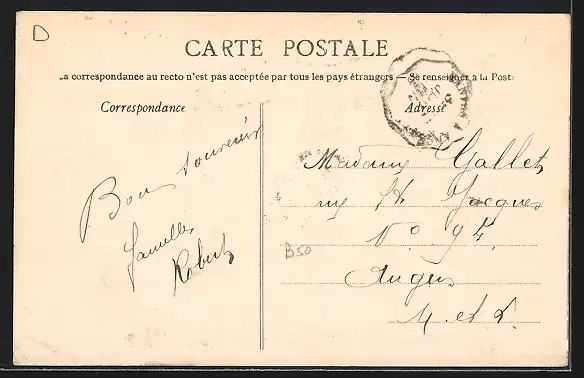 D
CARTE POSTALE
La correspondance au recto n'est pas acceptée par tous les pays étrangers — Se renseigner à la Poste
Correspondance
Adresse
Bon souvenir
famille
Robert
Madame Gallet
rue St Jacques
N° 94
Angers
M. et L.
B50